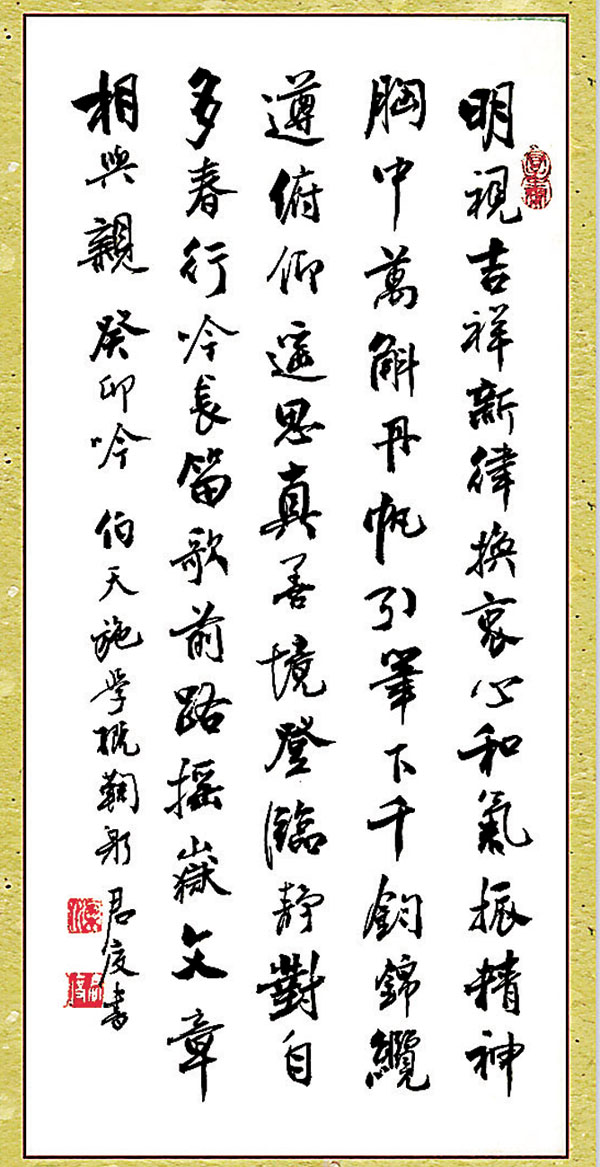 明視吉祥新律換衷心和氣振精神
胸中萬斛丹帆引筆下千鈞錦纜
遵俯仰遥思真善境登臨静對自
多春行吟長笛歌前路摇嶽文章
相與親 癸卯吟 伯天施学概鞠躬 君度書